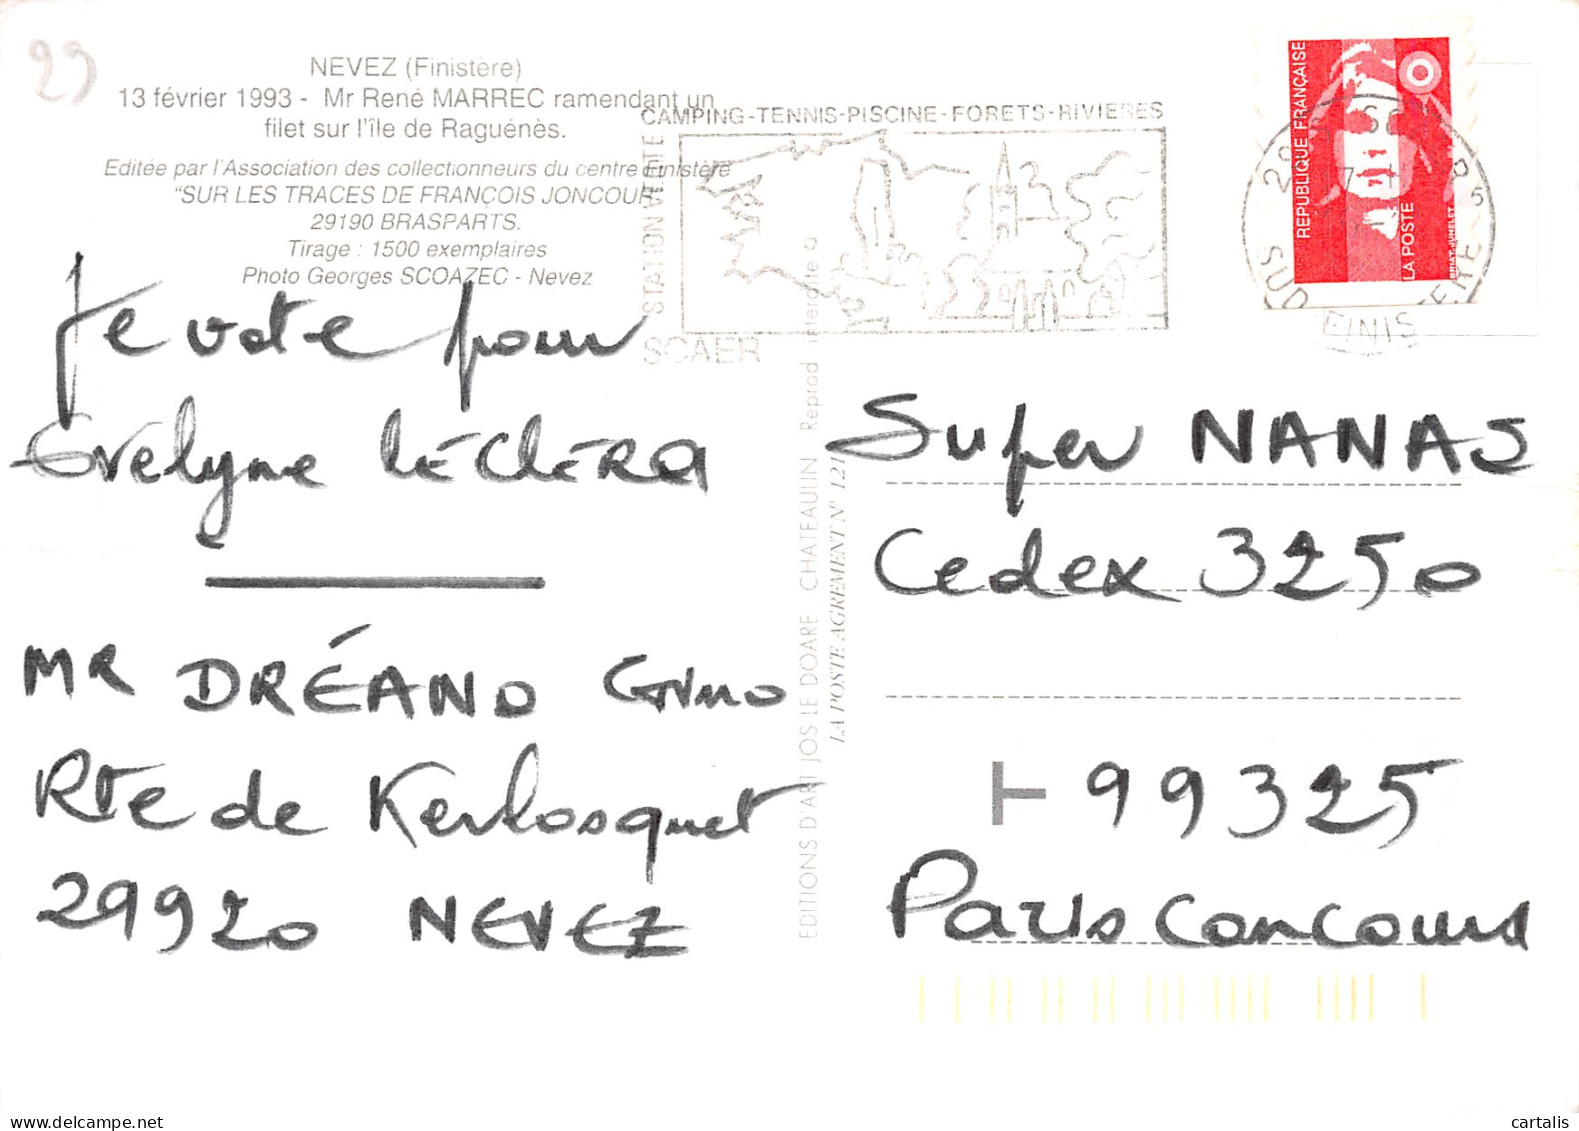 29
NEVEZ (Finistère)
13 février 1993 - Mr René MARREC ramendant un
filet sur l'île de Raguénès.
Editée par l'Association des collectionneurs du centre Finistère
"SUR LES TRACES DE FRANÇOIS JONCOUR"
29190 BRASPARTS.
Tirage : 1500 exemplaires
Photo Georges SCOAZEC - Nevez
Je vote pour
Evelyne LÉCLÈRA
MR DRÉANO
Rte de Kerlosquet
29920 NEVEZ
CAMPING-TENNIS-PISCINE-FORETS-RIVIERES
STATION VERTE
SCAER
EDITIONS D'ART JOS LE DOARE CHATEAULIN Reprod interdite
LA POSTE AGREMENT N° 121
REPUBLIQUE FRANÇAISE
LA POSTE
BRIAT-JUMELET
SUD FINISTERE
Super NANAS
Cedex 3250
T 99325
Paris Concours
cartalis
delcampe.net